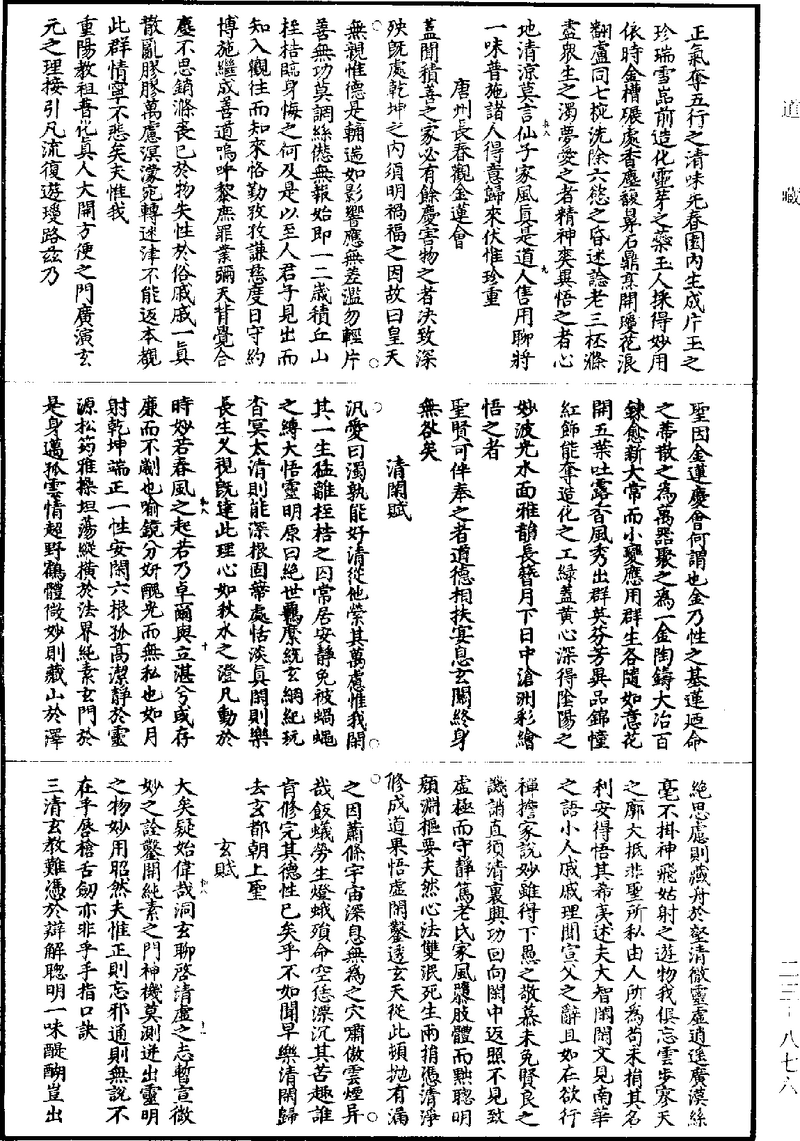 道藏
正氣奪五行之清味先春園內生成片玉之
珍瑞雪嵓前造化靈芽之藥玉人採得妙用
依時金槽碾處香塵馥鼻石鼎烹開瓊花浪
翻盧同七椀洗除六慾之昏迷諗老三杯滌
盡衆生之濁夢愛之者精神爽異悟之者心
地清涼莫言仙子家風真是道人售用聊將
一味普施諸人得意歸來伏惟珍重
唐州長春觀金蓮會
蓋聞積善之家必有餘慶害物之者決致深
殃既處乾坤之內須明禍福之因故曰皇天
無親惟德是輔遄如影響應無差濫勿輕片
善無功莫謂絲愆無報始即一二歲積丘山
桎梏臨身悔之何及是以至人君子見出而
知入觀往而知來恪勤孜孜謙慈度日守約
博施繼成善道嗚呼黎庶罪業彌天背覺合
塵不思銷滌喪已於物失性於俗戚戚一真
散亂膠膠萬慮溟濛宛轉迷津不能返本覩
此群情寧不悲矣夫惟我
重陽教祖普化真人大開方便之門廣演玄
元之理接引凡流復遊瓊路茲乃
聖因金蓮慶會何謂也金乃性之基蓮廼命
之蒂散之為萬器聚之為一金陶鑄大冶百
鍊愈新大常而小變應用群生各隨如意花
開五葉吐露香風秀出群英芬芳異品錦幢
紅飾能奪造化之工綠蓋黃心深得陰陽之
妙波光水面雅韻長聳月下日中滄洲彩繪
悟之者
聖賢可伴奉之者道德相扶宴息玄關終身
無欲矣
清閑賦
汎愛曰濁孰能好清從他縈其萬慮惟我閑
其一生猛離桎梏之囚常居安靜免被蝸蠅
之縛大悟靈明原曰絕世羈縻統玄綱紀玩
杳冥太清則能深根固蔕處恬淡真閑則樂
長生久視既達此理心如秋水之澄凡動於
時妙若春風之起若乃卓爾與立湛兮或存
廉而不劌也喻鏡分妍醜光而無私也如月
射乾坤端正一性安閑六根孤高潔靜於靈
源松筠雅操坦蕩縱橫於法界純素玄門於
是身邁孤雲情超野鶴體微妙則藏山於澤
絕思慮則藏舟於壑清微靈虛逍遙廣漠絲
毫不掛神飛姑射之遊物我俱忘雲步寥天
之廓大抵非聖所私由人所為苟未捐其名
利安得悟其希夷述夫大智閑閑文見南華
之語小人戚戚理聞宣父之辭且如在欲行
禪擔家說妙雖得下愚之敬慕未免賢良之
譏誚直須清裏興功回向閑中返照不見致
虛極而守靜篤老氏家風隳肢體而黜聰明
顏淵樞要夫然心法雙泯死生兩捐憑清淨
修成道果悟虛閑鑿透玄天從此頓拋有漏
之因蕭條宇宙深息無為之穴嘯傲雲煙異
哉飯蟻勞生燈蛾殞命空恁漂沉其苦趣誰
肯修完其德性已矣乎不如聞早樂清閑歸
去玄都朝上聖
玄賦
大矣疑始偉哉洞玄聊啓清虛之志暫宣微
妙之詮鑿開純素之門神機莫測迸出靈明
之物妙用昭然夫惟正則忘邪通則無說不
在乎唇槍舌劒亦非乎手指口訣
三清玄教難憑於辯解聰明一味醍醐豈出
二三－八七六